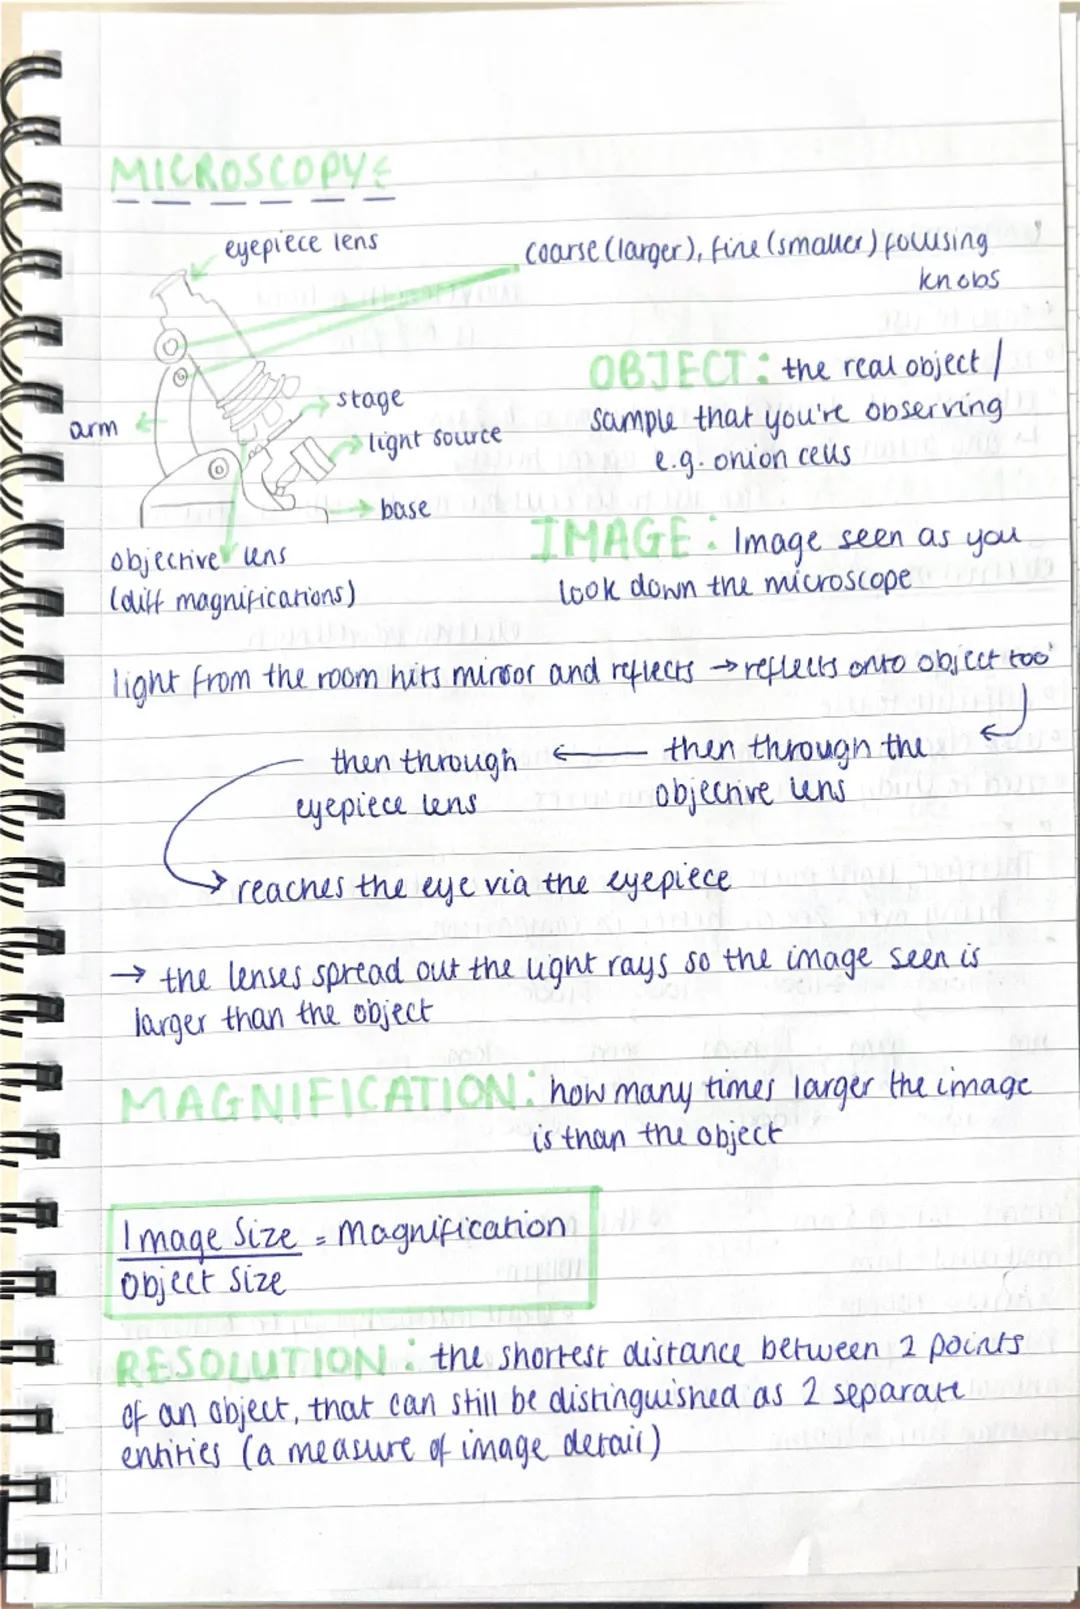 MICROSCOPY:
eyepiece lens
coarse (larger), fine (smaller) focusing
knobs
OBJECT: the real object /
sample that you're observing
e.g. onion cells
stage
arm
light source
base
objective lens
(diff magnifications)
IMAGE: Image seen as you
look down the microscope
light from the room hits mirror and reflects → reflects onto object too
then through ← then through the
eyepiece lens objective lens
→ reaches the eye via the eyepiece
→ the lenses spread out the light rays so the image seen is
larger than the object
MAGNIFICATION: how many times larger the image
is than the object
Image Size = Magnification
Object Size
RESOLUTION: the shortest distance between 2 points
of an object, that can still be distinguished as 2 separate
entities (a measure of image detail)